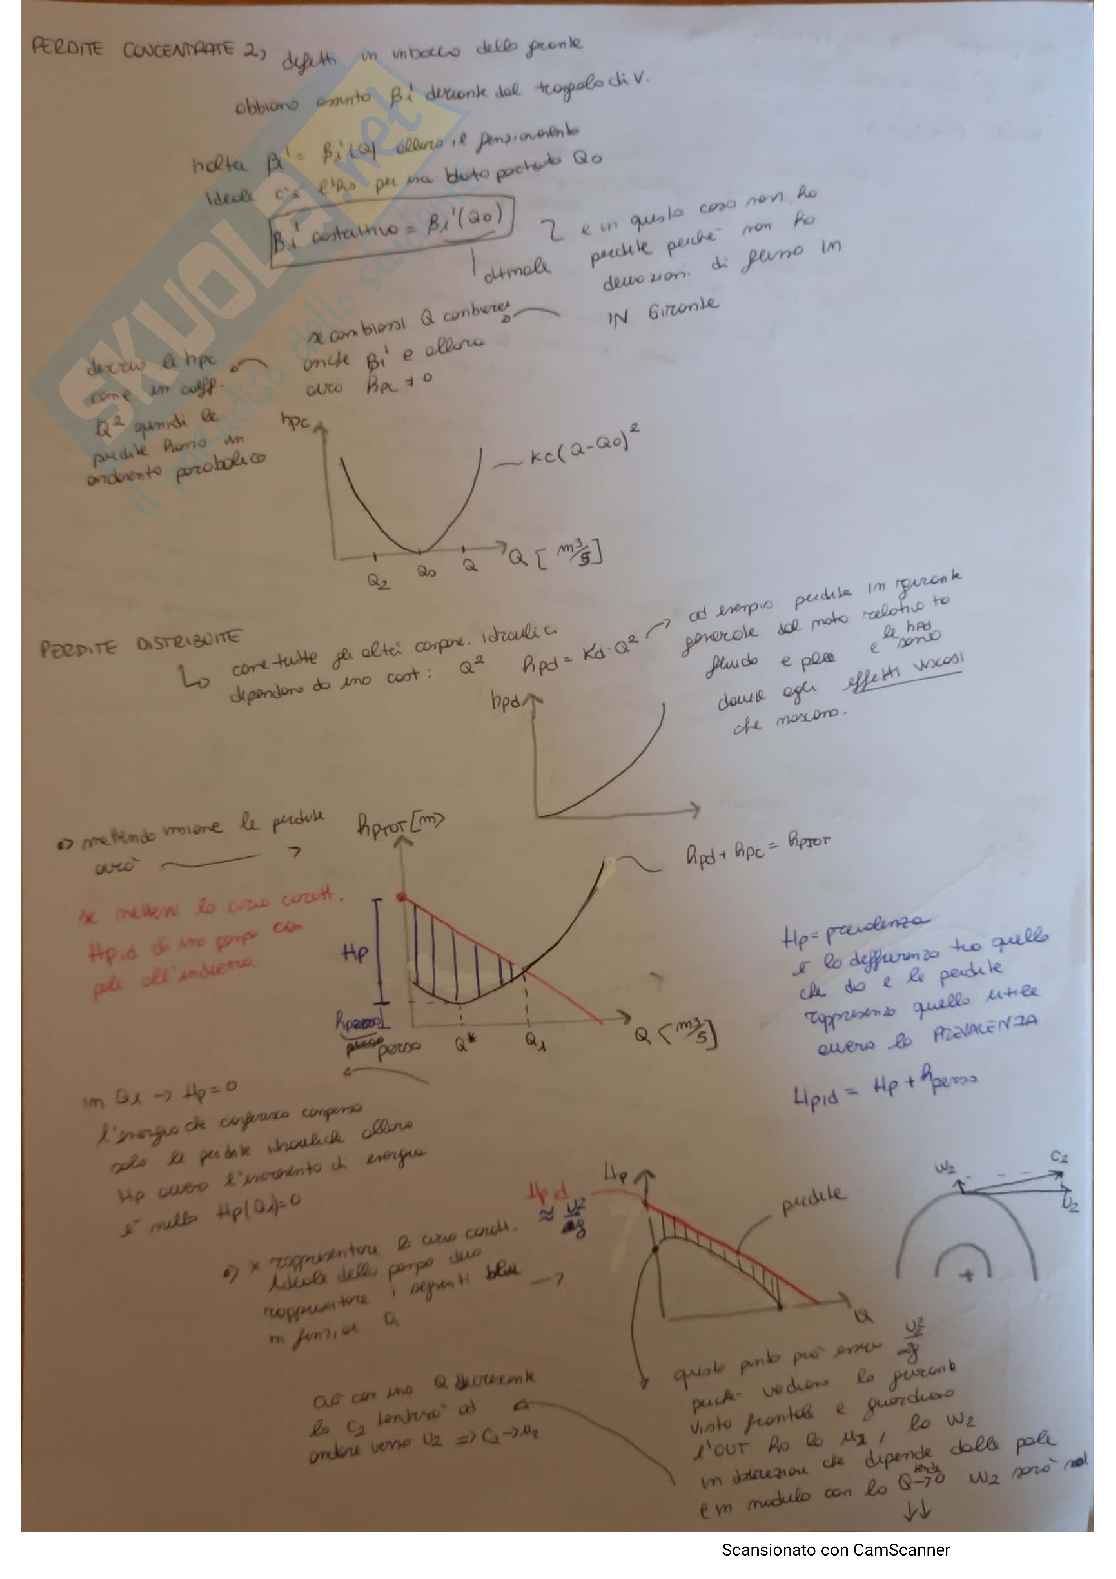 PERDITE CONCENTRATE 2) difetti in imbocco della girante
abbiamo assunto βi' derivante dal triangolo di V.
βi' = βi'(Q) allora il funzionamento
ideale c'è l'ho per una data portata Q0
βi' costruttivo = βi'(Q0)
ottimale
e in questo caso non ho
perdite perché non ho
deviazioni di flusso in
IN Girante
se cambiassi Q cambierei
anche βi' e allora
avrò hpc ≠ 0
descrivo le hpc
come un coeff.
Q² quindi le
perdite hanno un
andamento parabolico
hpc
kc(Q-Q0)²
Q2 Q0 Q Q [m³/s]
PERDITE DISTRIBUITE
come tutte gli altri compon. idraulici
dipendono da una cost: Q² hpd = Kd·Q²
ad esempio perdite in girante
generate dal moto relativo tra
fluido e pale e le hpd sono
dovute agli effetti viscosi
che nascono.
hpd
mettendo insieme le perdite
avrò
hpTOT [m]
hpd + hpc = hpTOT
se mettessi la curva caratt.
Hpid di una pompa con
pale all'indietro
Hp
perso
Q* Q1 Q [m³/s]
Hp = prevalenza
è la differenza tra quello
che do e le perdite
rappresenta quello utile
ovvero la PREVALENZA
Hpid = Hp + hperso
in Q1 → Hp = 0
l'energia che conferisco compensa
solo le perdite idrauliche allora
Hp ovvero l'incremento di energia
è nulla Hp(Q1)=0
x rappresentare la curva caratt.
ideale della pompa devo
rappresentare i seguenti
in funz. di Q
Hp
Hpid
≈ U2²/g
perdite
Q
W2 C2
U2
questo punto può essere U2²/g
perché vediamo la girante
vista frontale e guardiamo
l'OUT ho la u2, la W2
in direzione che dipende dalla pala
e in modulo con la Q→0 W2 sarà
↓↓
con una Q decrescente
la C2 tenderà ad
andare verso U2 => C2→u2
SKUOLA.net
Scansionato con CamScanner